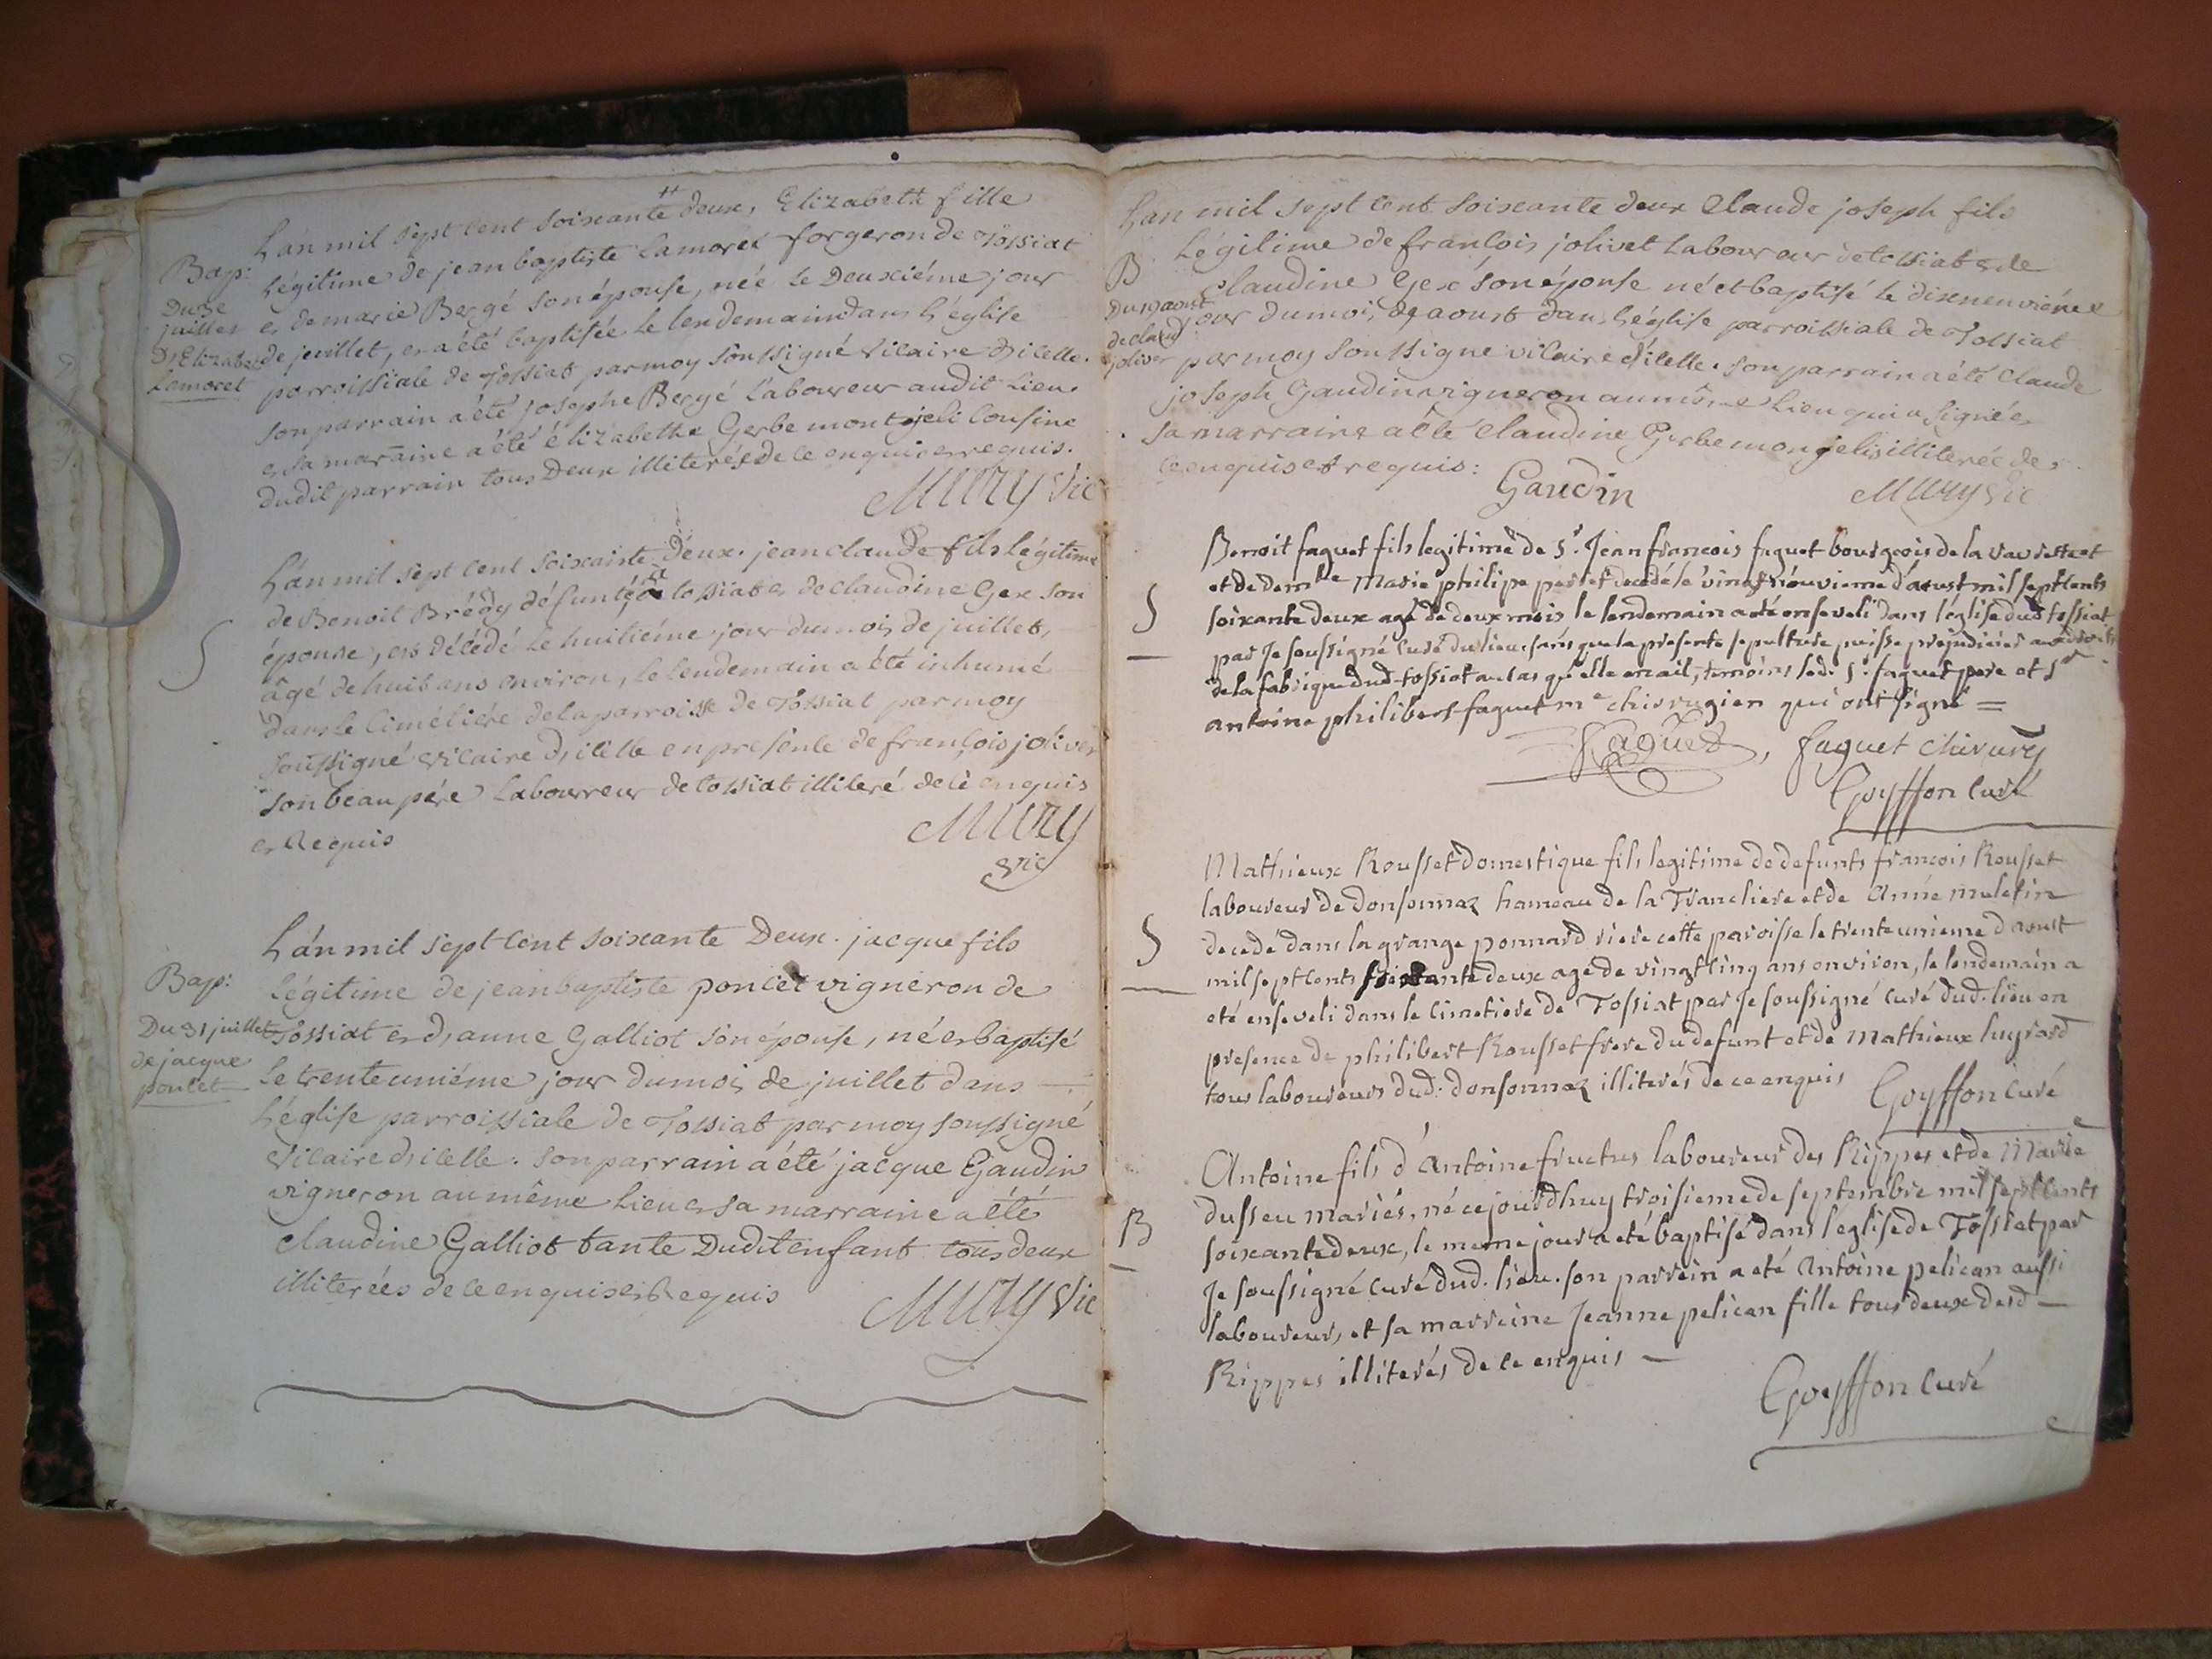 L'an mil sept cent soixante deux, Elizabeth fille
Bap: légitime de jean baptiste Lamoret forgeron de Tossiat
Du 3e juillet et de marie Bergé son épouse, née le Deuxiéme jour
D'Elizabet de juillet, et a été baptisée le lendemain dans l'église
Lamoret parroissiale de Tossiat par moy soussigné vicaire d'icelle.
son parrain a été josephe Bergé Laboureur audit Lieu.
et sa maraine a été élizabethe Gerbe montjeli Cousine
dudit parrain tous Deux illiterés de ce enquis et requis.
Mury Vic
L'an mil sept cent soixainte Deux. jean claude fils légitime
de Benoit Brédy défunt, a tossiat et de claudine Gex son
S
épouse, est décédé le huitiéme jour du mois de juillet,
âgé de huit ans environ, le lendemain a été inhumé
dans le Cimétiére de la parroisse de Tossiat par moy
soussigné vicaire d'icelle en presence de françois jolivet
son beau pére Labourreur de tossiat illiteré de ce enquis
et Requis
Mury
Vic
L'an mil sept cent soixante Deux. jacque fils
Bap: légitime de jean baptiste poncet vigneron de
Du 31 juillet Tossiat et d'anne Galliot son épouse, né et baptisé
de jacque
poncet le trente uniéme jour du mois de juillet dans
l'église parroissiale de Tossiat par moy soussigné
Vicaire d'icelle. son parrain a été jacque Gaudin
vigneron au même Lieu et sa marraine a été
claudine Galliot tante Dudit enfant tous deux
illiterées de ce enquis et Requis
Mury Vic
L'an mil sept cent soixante deux Claude joseph fils
Légitime de françois jolivet Laboureur de tossiat et de
B Claudine Gex son éponse né et baptisé le dixneuviéme
Du 19 aout jour du mois de aoust dans l'église parroissiale de Tossiat
de claud
joliver par moy soussigne vicaire d'icelle. son parrain a été Claude
joseph Gaudin vigneron au même Lieu qui a signé et
sa marraine a été Claudine Gerbe mongelis illiterée de
ce enquis et requis:
Gaudin Mury Vic
Benoit faguet fils legitime de Sr. Jean francois faguet bourgeois de la
et de demlle Marie philipe est decedé le vingt neuvieme d'aoust mil sept cents
S
soixante deux agé de deux mois le lendemain a eté enseveli dans l'église dud tossiat
par Je soussigné Curé du lieu. sans que la presente sepulture puisse prejudicier aux droits
de la fabrique dud. tossiat au cas qu'elle en ait, temoins led. Sr. faguet pere et Sr
antoine philibert faguet me chirurgien qui ont signé =
Faguet, faguet chirurg
Goyffon Curé
Mathieux Rousset domestique fils legitime de defunts francois Rousset
laboureur de donsonnaz hameau de la Trancliere et de Anne muletin
S
decedé dans la grange ponnard riere cette paroisse le trente unieme d'aoust
mil sept cents soixante deux agé de vingt cinq ans environ, le lendemain a
eté enseveli dans le cimetiere de Tossiat par Je soussigné curé dud. lieu en
presence de philibert Rousset frere du defunt et de Mathieux luyrard
tous laboureurs dud. donsonnaz illiterés de ce enquis Goyffon Curé
Antoine fils d'Antoine fructus laboureur des Rippes et de Marie
dusseu mariés, né ce jourdhuy troisieme de septembre mil sept cents
B
soixante deux, le meme jour a eté baptisé dans l'eglise de Tossiat par
Je soussigné curé dud. lieu. son parrein a eté Antoine pelican aussi
laboureur, et sa marreine Jeanne pelican fille tous deux desd
Rippes illiterés de ce enquis
Goyffon Curé